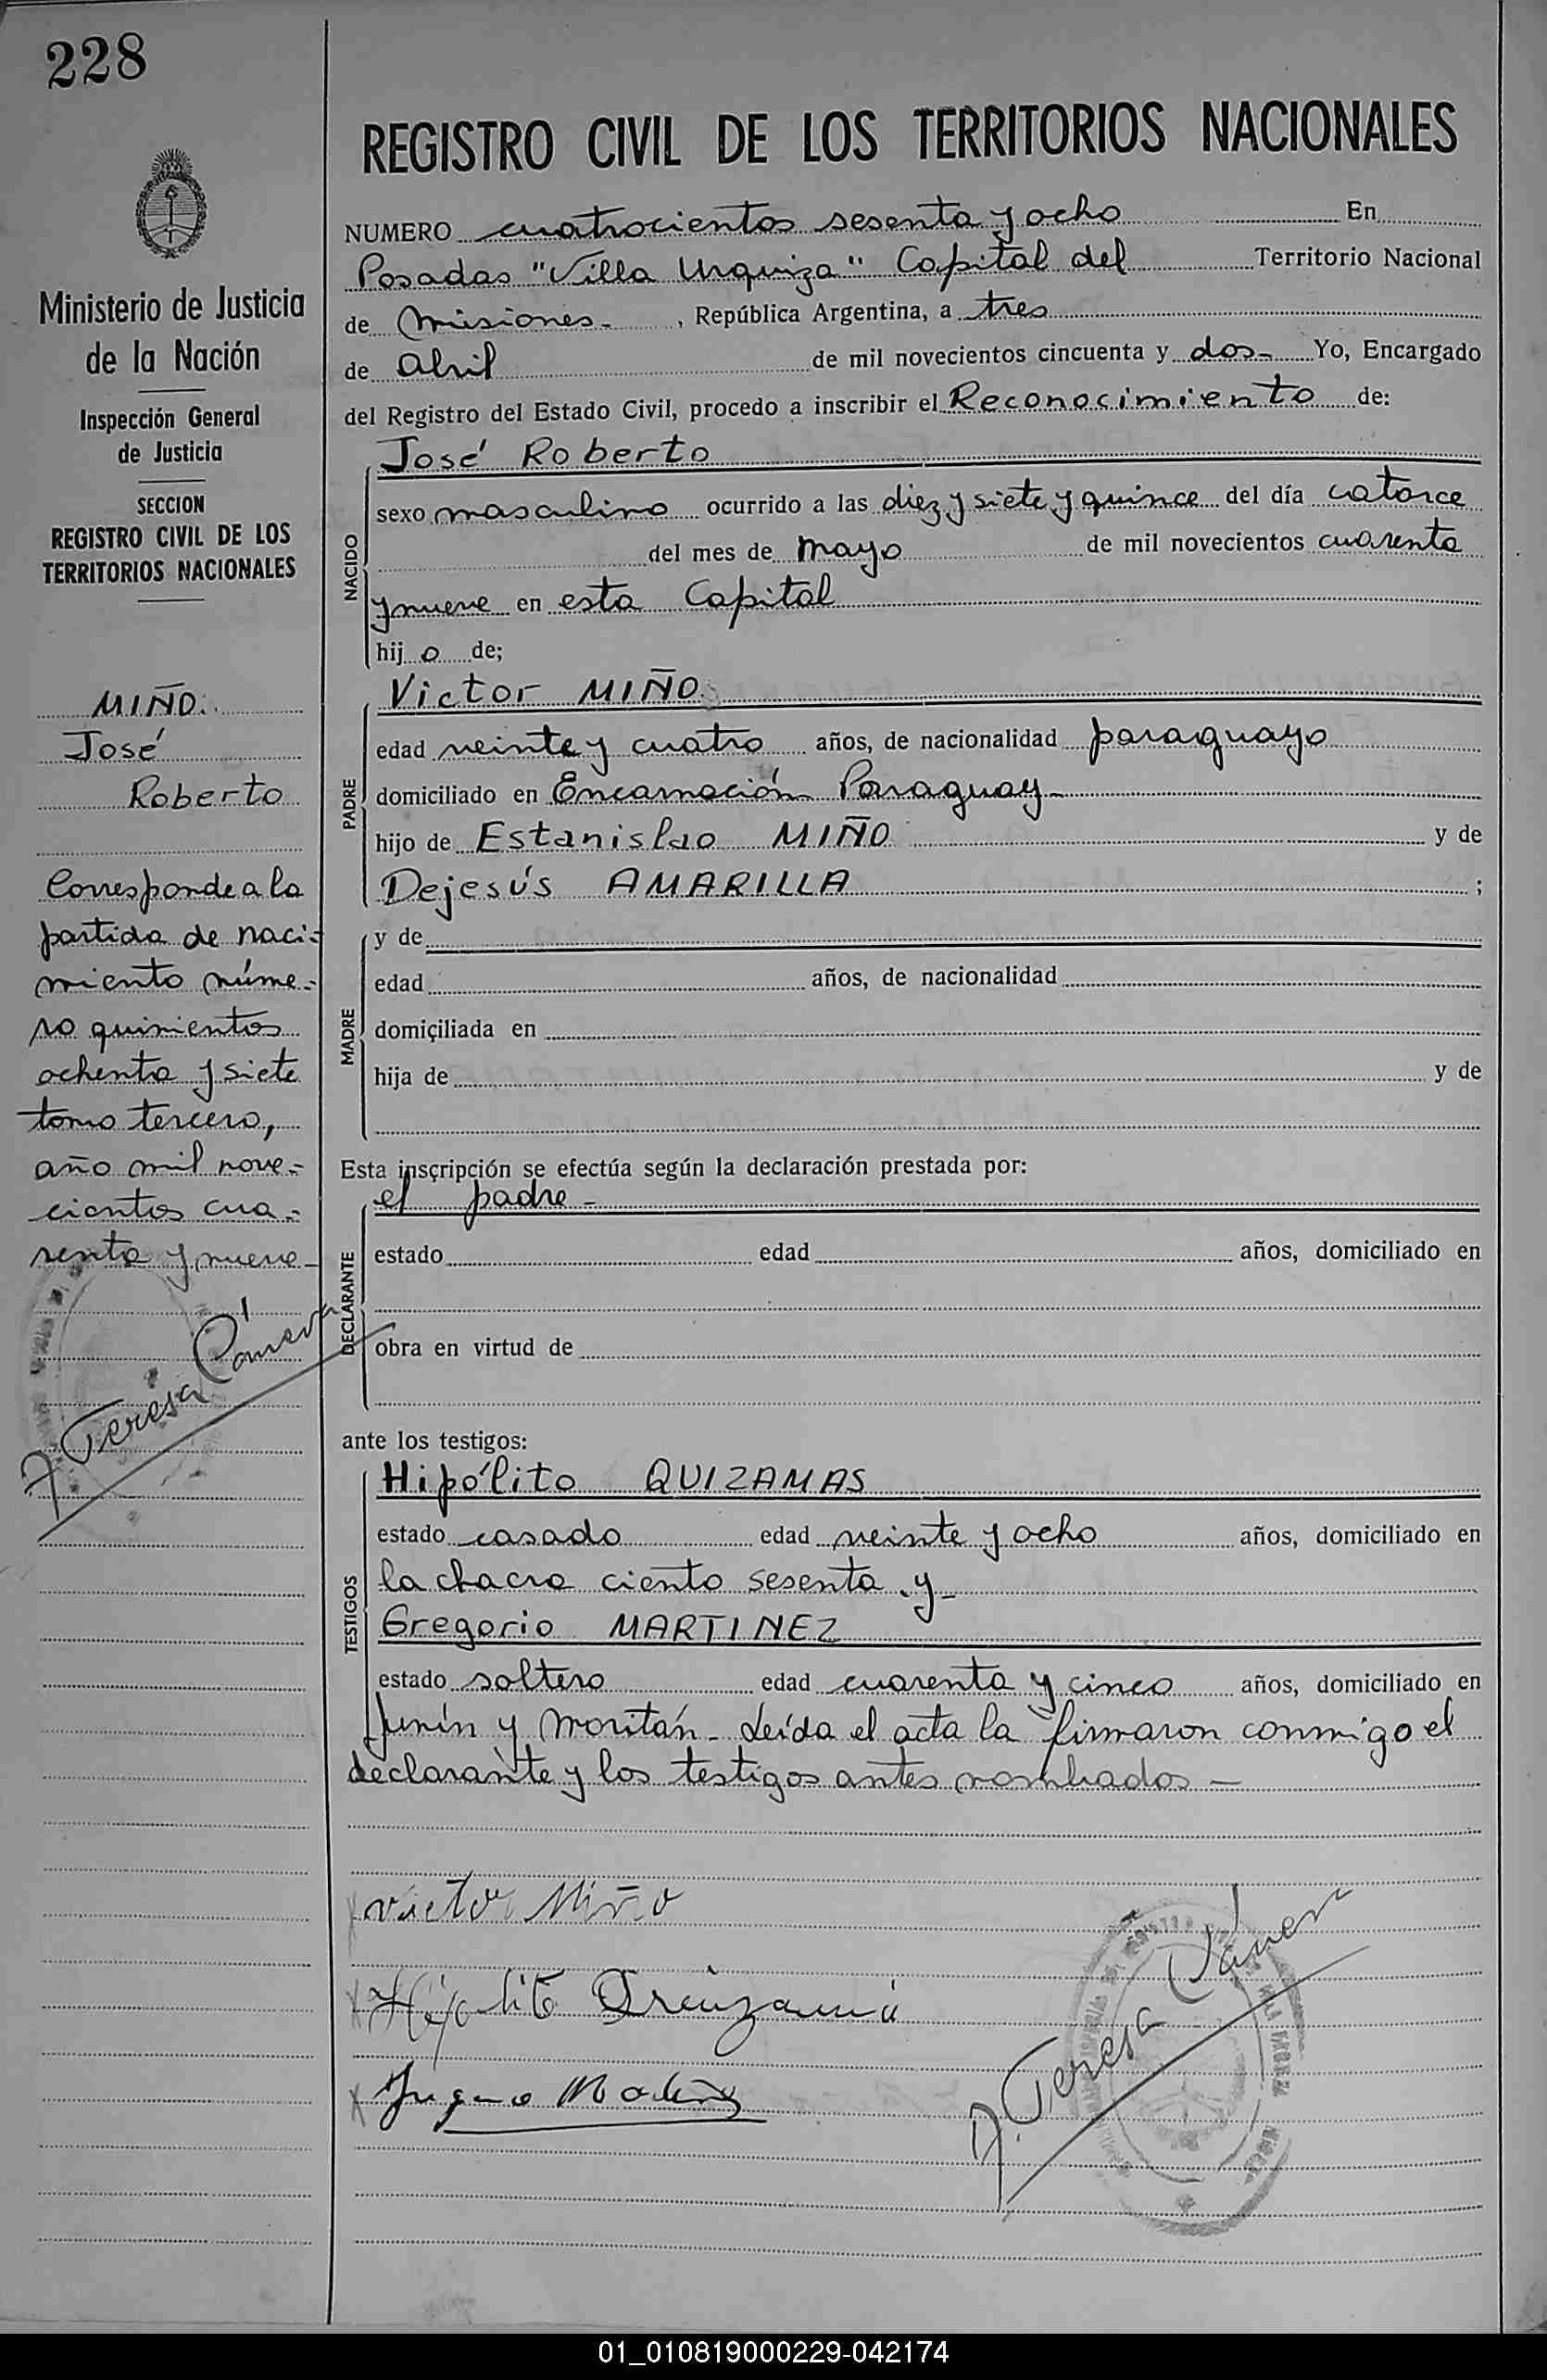 228
Ministerio de Justicia
de la Nación
Inspección General
de Justicia
SECCION
REGISTRO CIVIL DE LOS
TERRITORIOS NACIONALES
MIÑO.
José
Roberto
Corresponde a la
partida de naci-
miento núme-
ro quinientos
ochenta y siete
tomo tercero,
año mil nove-
cientos cua-
renta y nueve
A. Teresa
REGISTRO CIVIL DE LOS TERRITORIOS NACIONALES
NUMERO cuatrocientos sesenta y ocho En
Posadas "Villa Urquiza" Capital del Territorio Nacional
de Misiones-, República Argentina, a tres
de Abril de mil novecientos cincuenta y dos- Yo, Encargado
del Registro del Estado Civil, procedo a inscribir el Reconocimiento de:
José Roberto
NACIDO
sexo masculino ocurrido a las diez y siete y quince del día catorce
del mes de mayo de mil novecientos cuarenta
y nueve en esta Capital
hij o de;
Victor MIÑO
PADRE
edad veinte y cuatro años, de nacionalidad paraguayo
domiciliado en Encarnación Paraguay-
hijo de Estanislao MIÑO y de
Dejesús AMARILLA ;
MADRE
y de
edad años, de nacionalidad
domiciliada en
hija de y de
Esta inscripción se efectúa según la declaración prestada por:
el padre-
DECLARANTE
estado edad años, domiciliado en
obra en virtud de
ante los testigos:
Hipólito QUIZAMAS
TESTIGOS
estado casado edad veinte y ocho años, domiciliado en
la chacra ciento sesenta y-
Gregorio MARTINEZ
estado soltero edad cuarenta y cinco años, domiciliado en
Junín y Moritán- Leída el acta la firmaron conmigo el
declarante y los testigos antes nombrados-
Victor Miño
A. Teresa
01_010819000229-042174